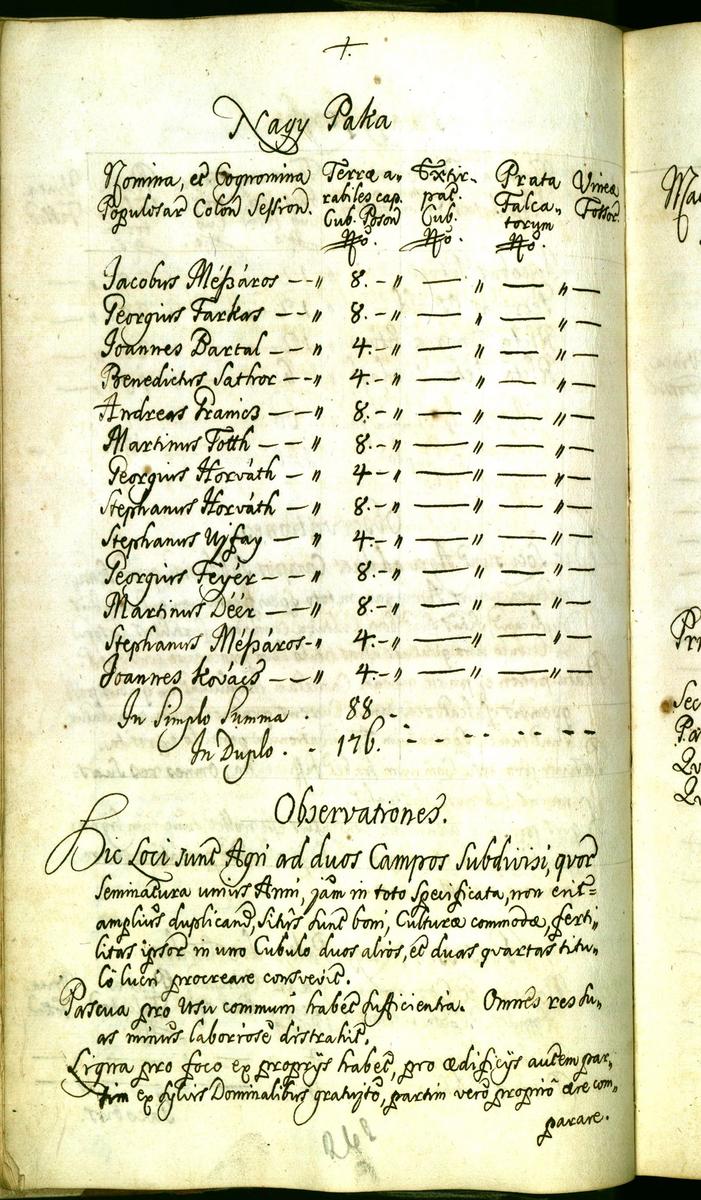 Nagy Paka
Nomina, et Cognomina Terræ a= Extir= Prata Vineæ
Populosar Colon Session. rabiles cap. pat. Falca= Fossor.
Cub. Poson Cub. torum
No. No. No.
Jacobus Méßáros — — " 8. – " — " — " —
Georgius Farkas — — " 8. – " — " — " —
Joannes Bartal — — " 4. – " — " — " —
Benedictus Sathor — — " 4. – " — " — " —
Andreas — — " 8. – " — " — " —
Martinus Totth — — " 8. – " — " — " —
Georgius Horváth — " 4. – " — " — " —
Stephanus Horváth — " 8. – " — " — " —
Stephanus Ujfay — " 4. – " — " — " —
Georgius Feyér — — " 8. – " — " — " —
Martinus Déér — — " 8. – " — " — " —
Stephanus Méßáros – " 4. – " — " — " —
Joannes Kovács — — " 4. – " — " — " —
In Simplo Summa . 88 –
In Duplo . – 176.
Observationes.
Hic Loci sunt Agri ad duos Campos Subdivisi, quor
Seminatura unius Anni, jam in toto specificata, non erit=
amplius duplicand, situs sunt boni, Culturæ commodæ, ferti=
litas ipsor in uno Cubulo duos alios, et duas quartas titu=
lo lucri procreare consvevit.
Pascua pro Usu communi habet sufficientia. Omnes res su=
as minus laboriose distrahit.
Ligna pro foco ex proprys habet, pro ædificys autem par=
tim ex sylvis Dominalibus gratujto, partim vero proprio ære com=
parare.
268